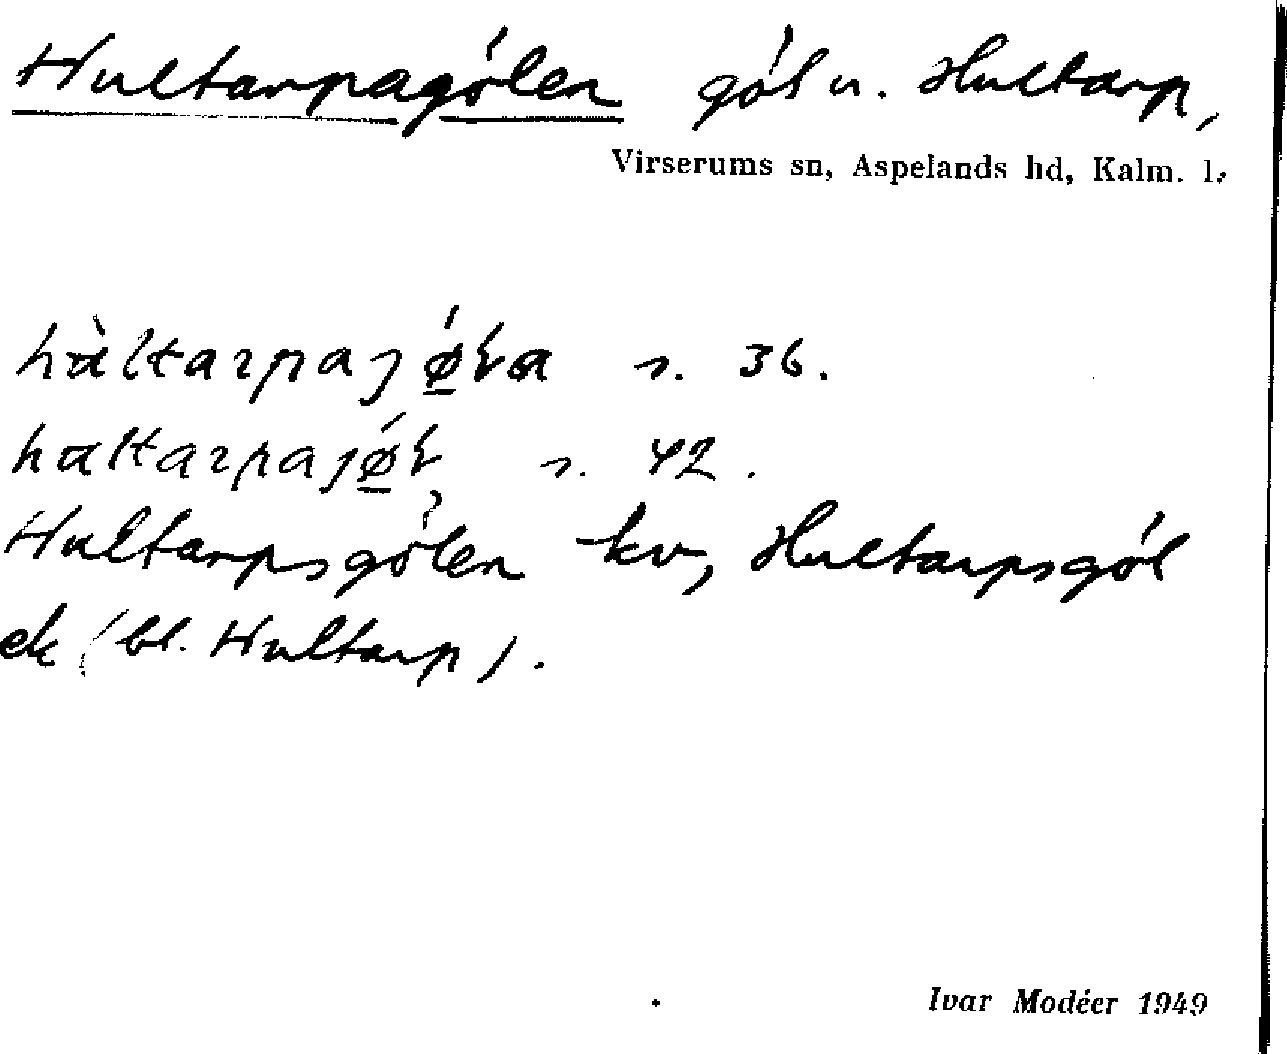 Hultarpagölen göl u. Hultarp,
Virserums sn, Aspelands hd, Kalm. l.
s. 36.
s. 42.
Hultarpsgölen kv, Hultarpsgöl
ek (bl. Hultarp).
Ivar Modéer 1949